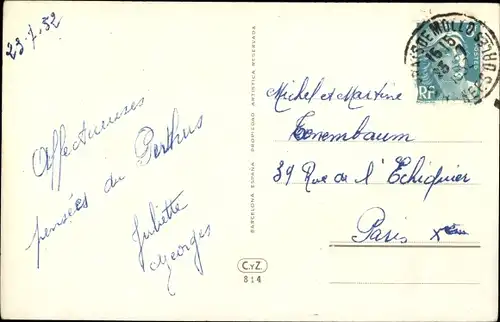 23.7.52
Affectueuses
pensées du Perthus
Juliette
Georges
BARCELONA ESPAÑA PROPIEDAD ARTISTICA RESERVADA
CyZ
814
PRATS DE MOLLO
RF
Michel et Martine
Tenembaum
39 Rue de l'Echiquier
Paris Xème